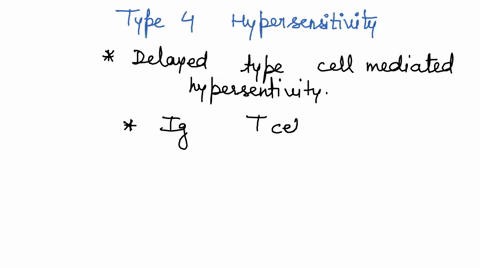 Type 4 Hypersensitivity
* Delayed type cell mediated
hypersentivity.
* Ig T cel